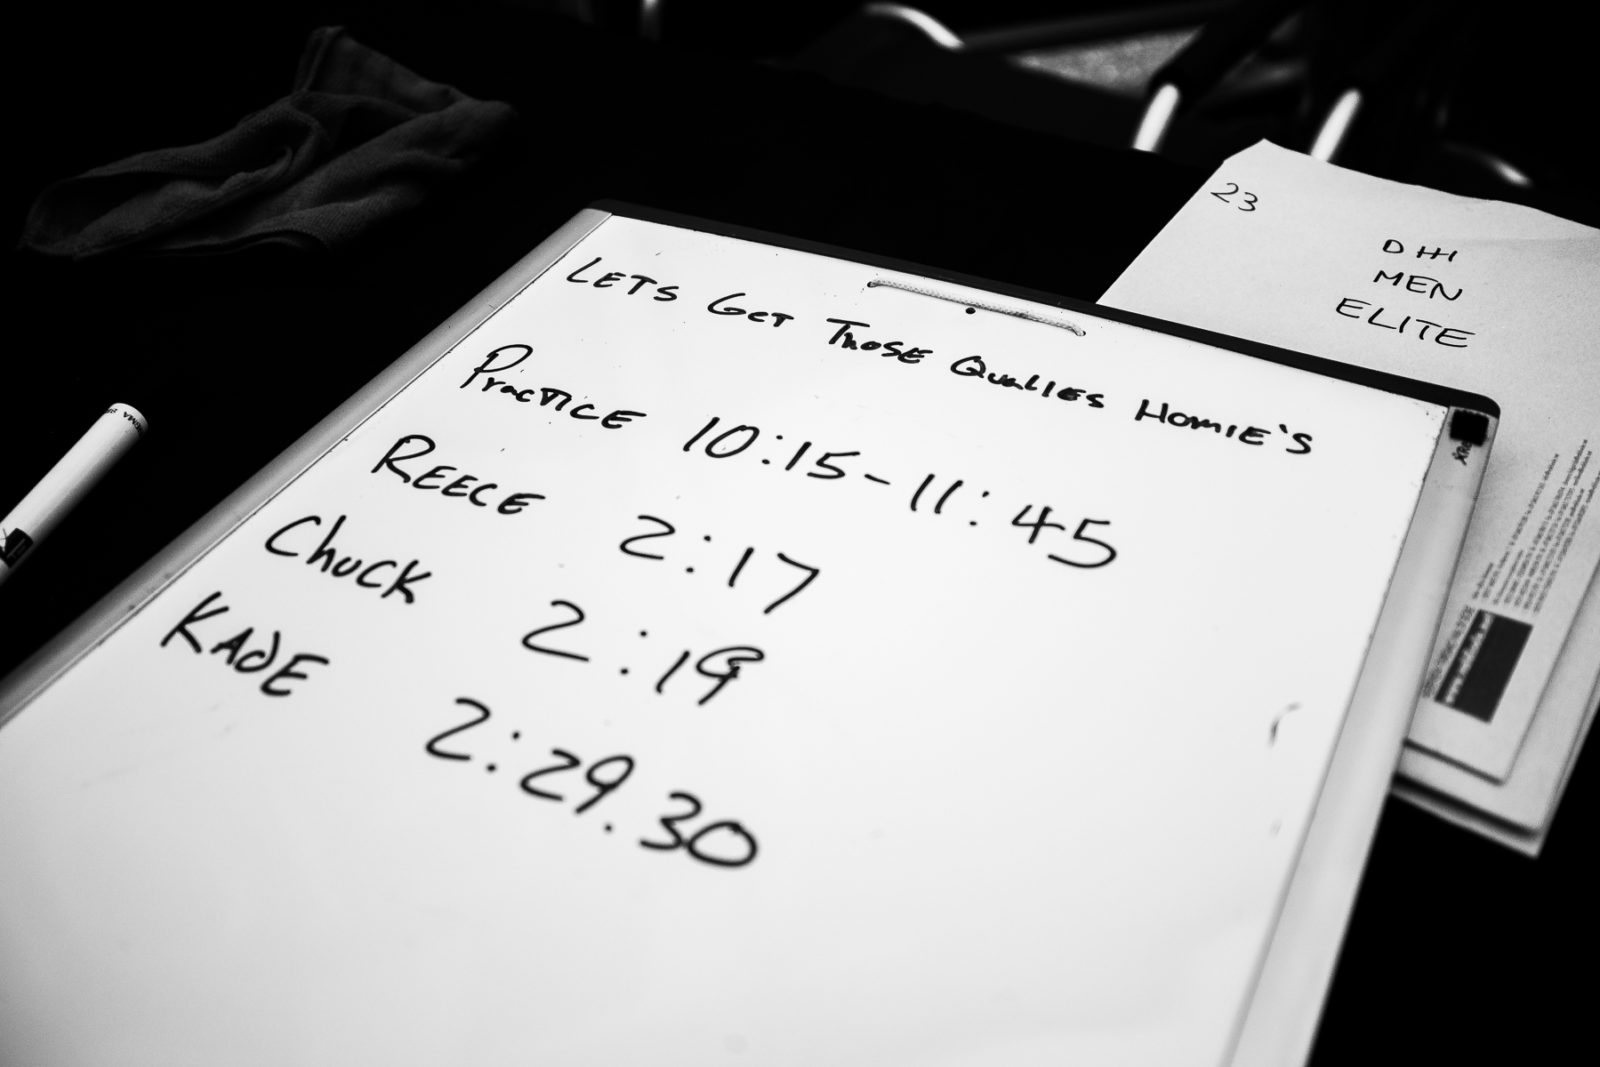 LETS GET THOSE QUALIES HOMIE'S
PRACTICE 10:15-11:45
REECE 2:17
ChUCK 2:19
KADE 2:29.30
23
DHI
MEN
ELITE